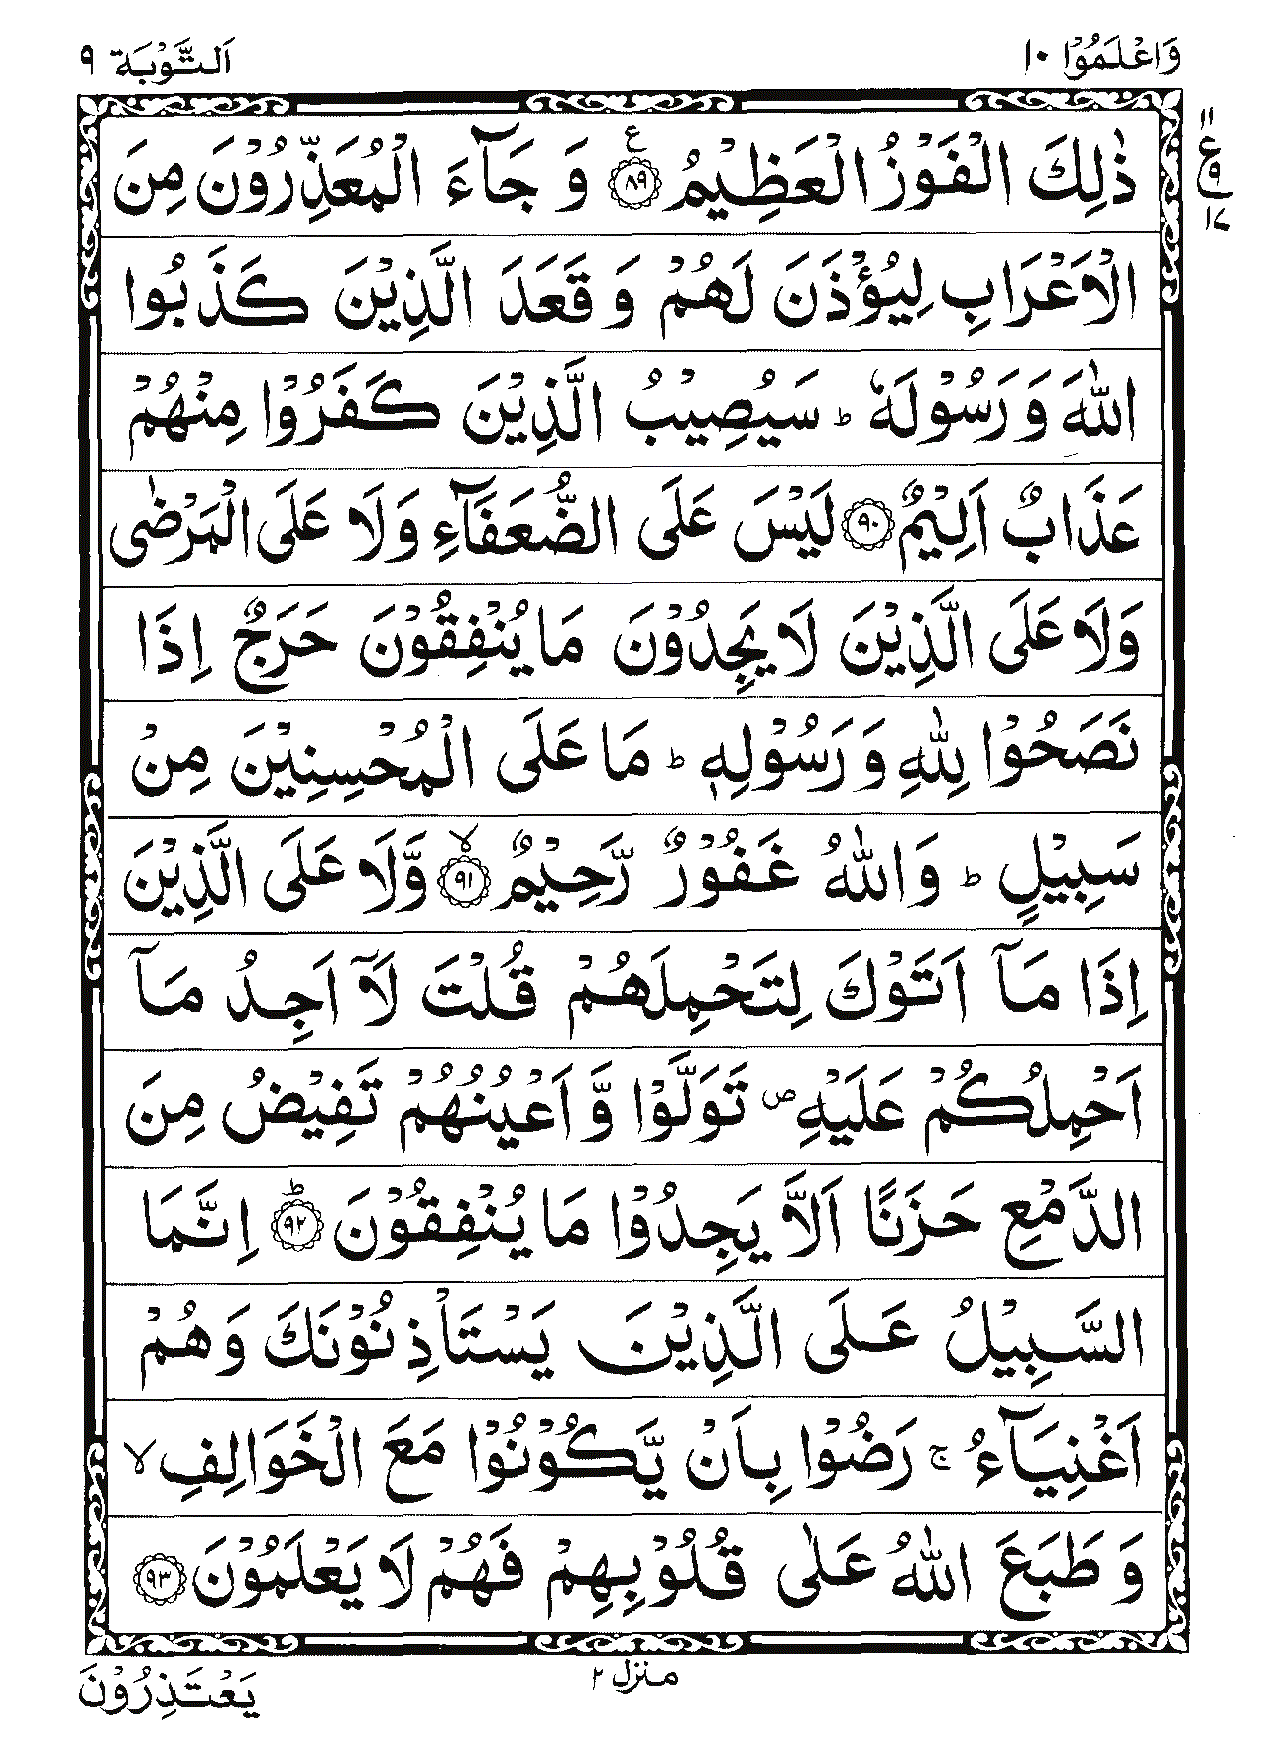 وَاعْلَمُوْا ١٠
اَلتَّوْبَة ٩
ذٰلِكَ الْفَوْزُ الْعَظِيْمُ ﴿٨٩﴾ ع وَ جَآءَ الْمُعَذِّرُوْنَ مِنَ
الْاَعْرَابِ لِيُؤْذَنَ لَهُمْ وَ قَعَدَ الَّذِيْنَ كَذَبُوا
اللّٰهَ وَ رَسُوْلَهٗ ؕ سَيُصِيْبُ الَّذِيْنَ كَفَرُوْا مِنْهُمْ
عَذَابٌ اَلِيْمٌ ﴿٩٠﴾ لَيْسَ عَلَى الضُّعَفَآءِ وَلَا عَلَى الْمَرْضٰى
وَلَا عَلَى الَّذِيْنَ لَا يَجِدُوْنَ مَا يُنْفِقُوْنَ حَرَجٌ اِذَا
نَصَحُوْا لِلّٰهِ وَ رَسُوْلِهٖ ؕ مَا عَلَى الْمُحْسِنِيْنَ مِنْ
سَبِيْلٍ ؕ وَاللّٰهُ غَفُوْرٌ رَّحِيْمٌ ﴿٩١﴾ ۙ وَّلَا عَلَى الَّذِيْنَ
اِذَا مَآ اَتَوْكَ لِتَحْمِلَهُمْ قُلْتَ لَآ اَجِدُ مَآ
اَحْمِلُكُمْ عَلَيْهِ ۪ تَوَلَّوْا وَّ اَعْيُنُهُمْ تَفِيْضُ مِنَ
الدَّمْعِ حَزَنًا اَلَّا يَجِدُوْا مَا يُنْفِقُوْنَ ﴿٩٢﴾ ؕ اِنَّمَا
السَّبِيْلُ عَلَى الَّذِيْنَ يَسْتَاْذِنُوْنَكَ وَهُمْ
اَغْنِيَآءُ ۚ رَضُوْا بِاَنْ يَّكُوْنُوْا مَعَ الْخَوَالِفِ ۙ
وَ طَبَعَ اللّٰهُ عَلٰى قُلُوْبِهِمْ فَهُمْ لَا يَعْلَمُوْنَ ﴿٩٣﴾
١١
ع
٩
١٧
منزل ٢
يَعْتَذِرُوْنَ